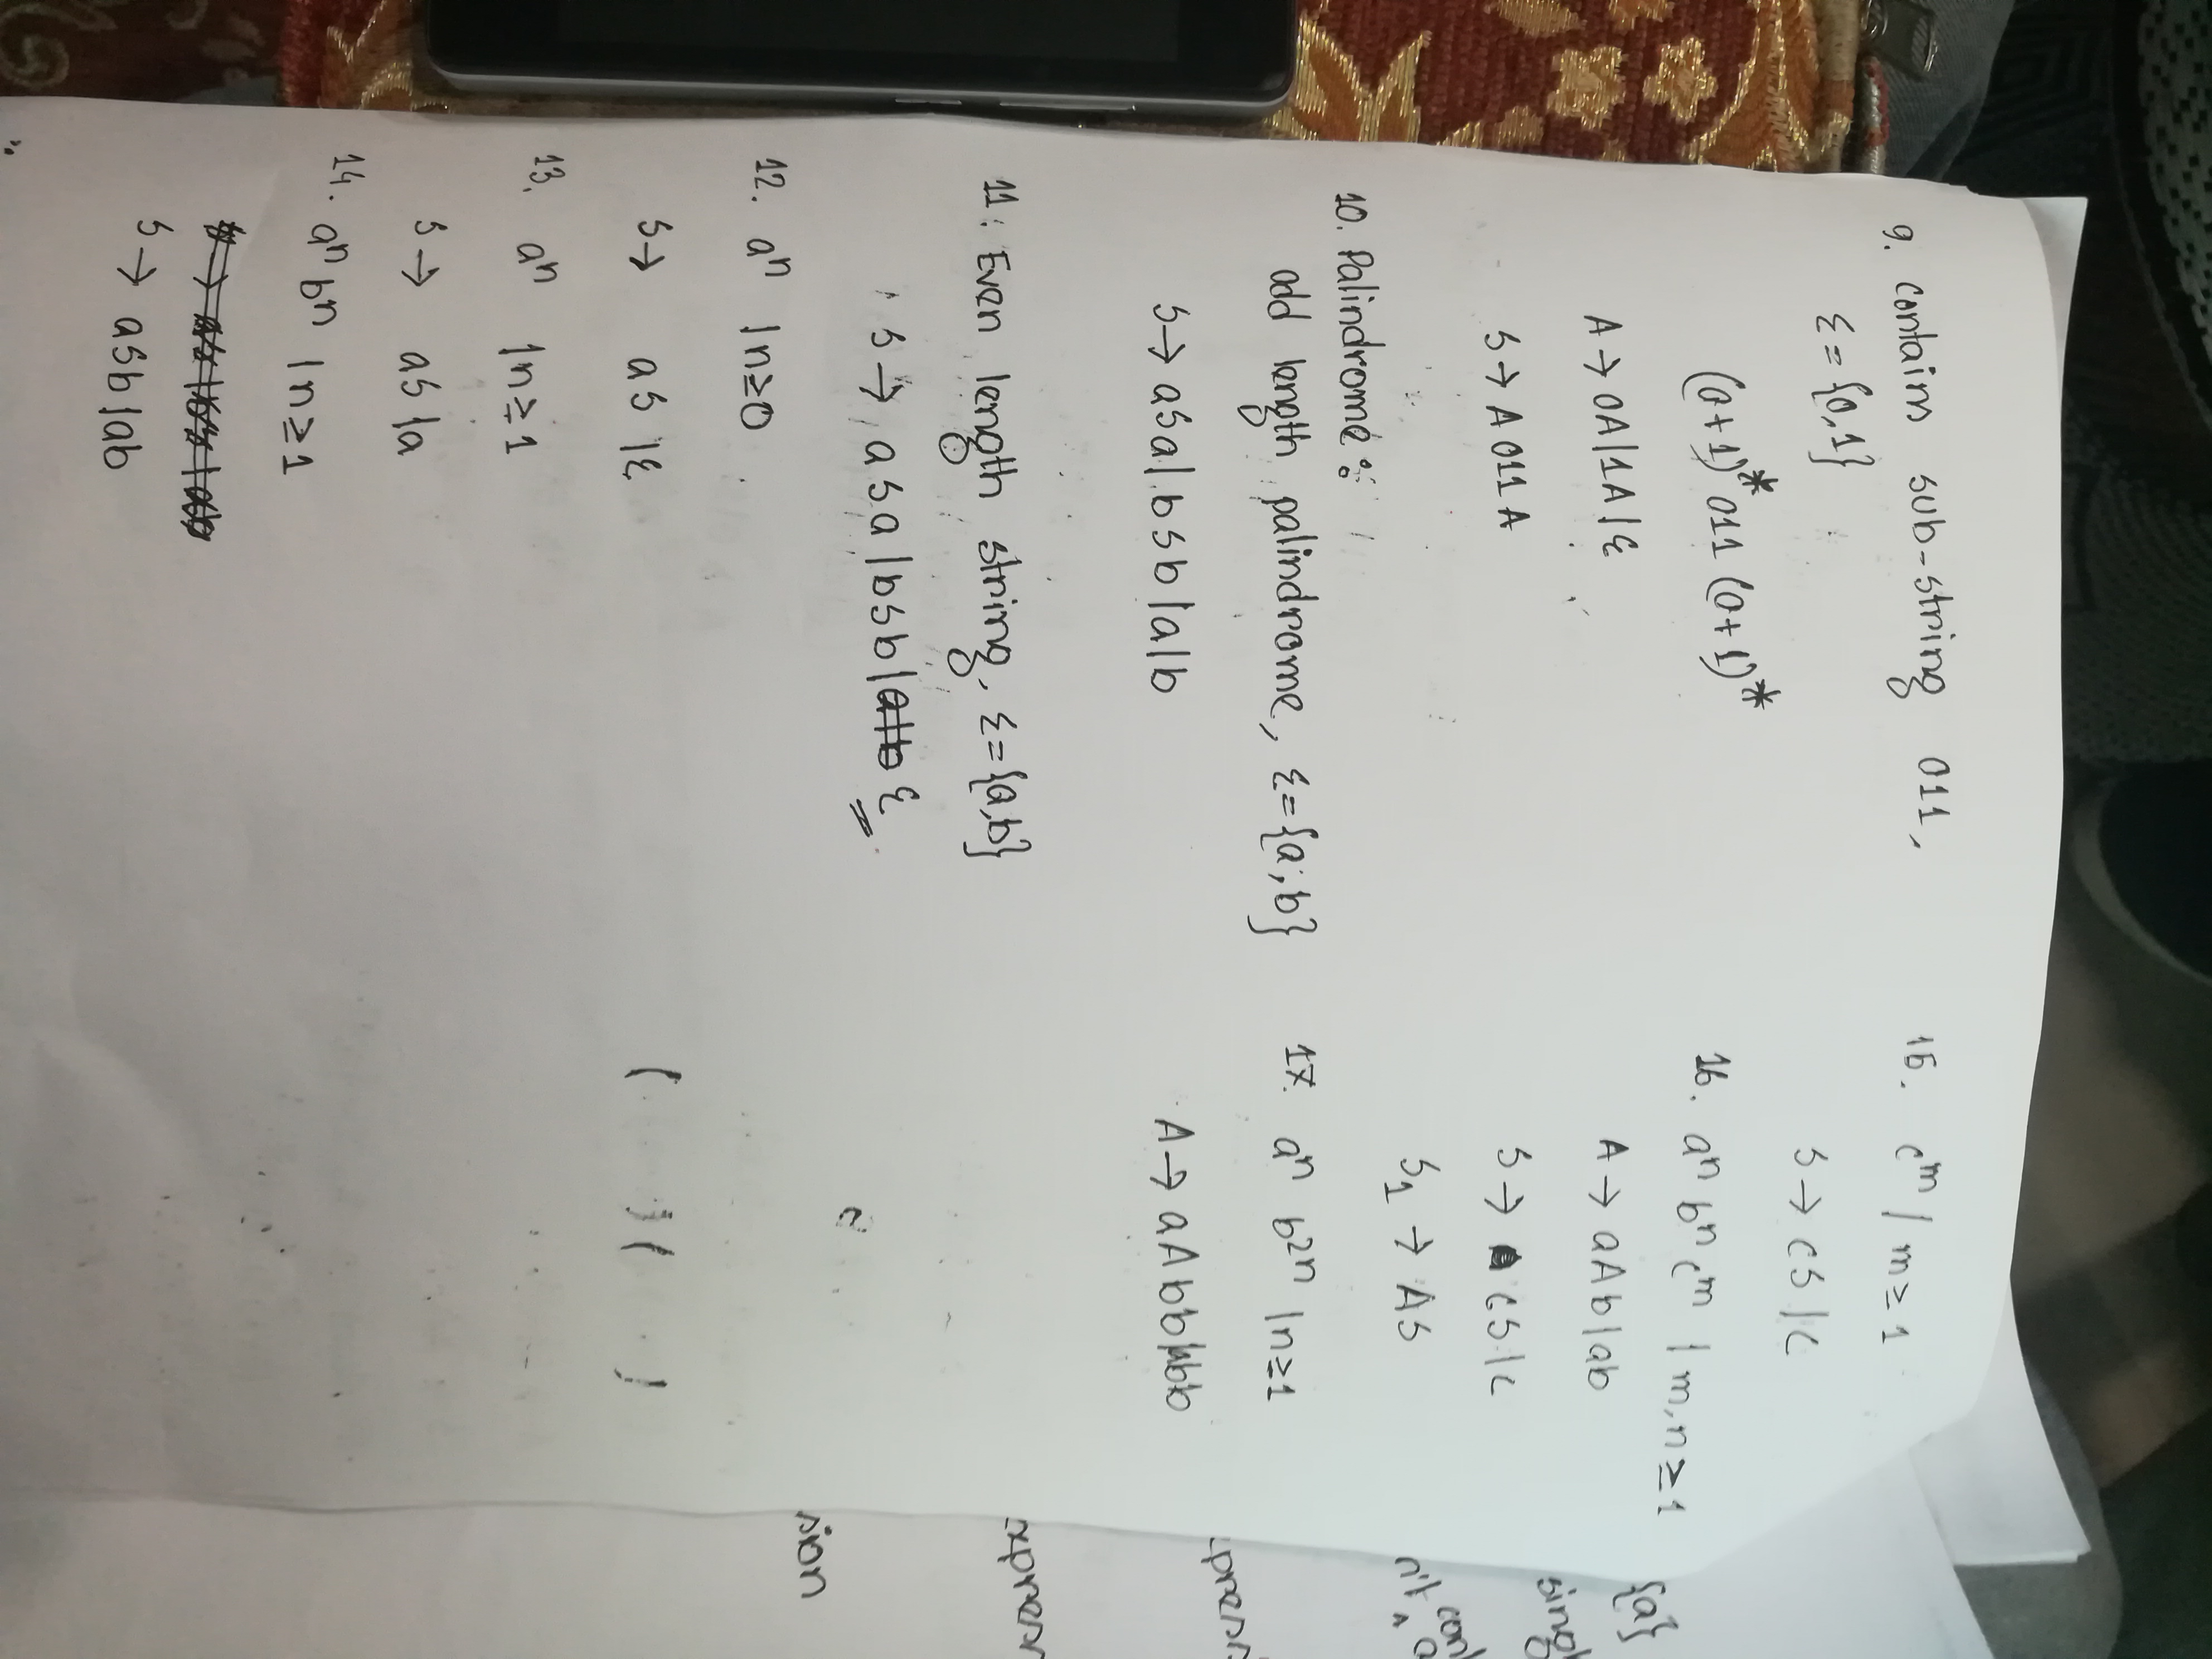 9. contains sub-string 011,
Ɛ = {0,1}
(0+1)* 011 (0+1)*
A → 0A|1A|Ɛ
S → A 011 A
10. Palindrome:
odd length palindrome, Ɛ={a,b}
S → aSa|bSb|a|b
11. Even length string, Ɛ={a,b}
S → aSa|bSb| Ɛ
12. aⁿ |n≥0
S → aS |Ɛ
13. aⁿ |n≥1
S → aS |a
14. aⁿ bⁿ |n≥1
S → aSb|ab
15. cᵐ | m≥1
S → cS|c
16. aⁿ bⁿ cᵐ | m,n≥1
A → aAb|ab
S → cS|c
S₁ → AS
17. aⁿ b²ⁿ |n≥1
A → aAbb|abb
( ) ( )
{a}
sion